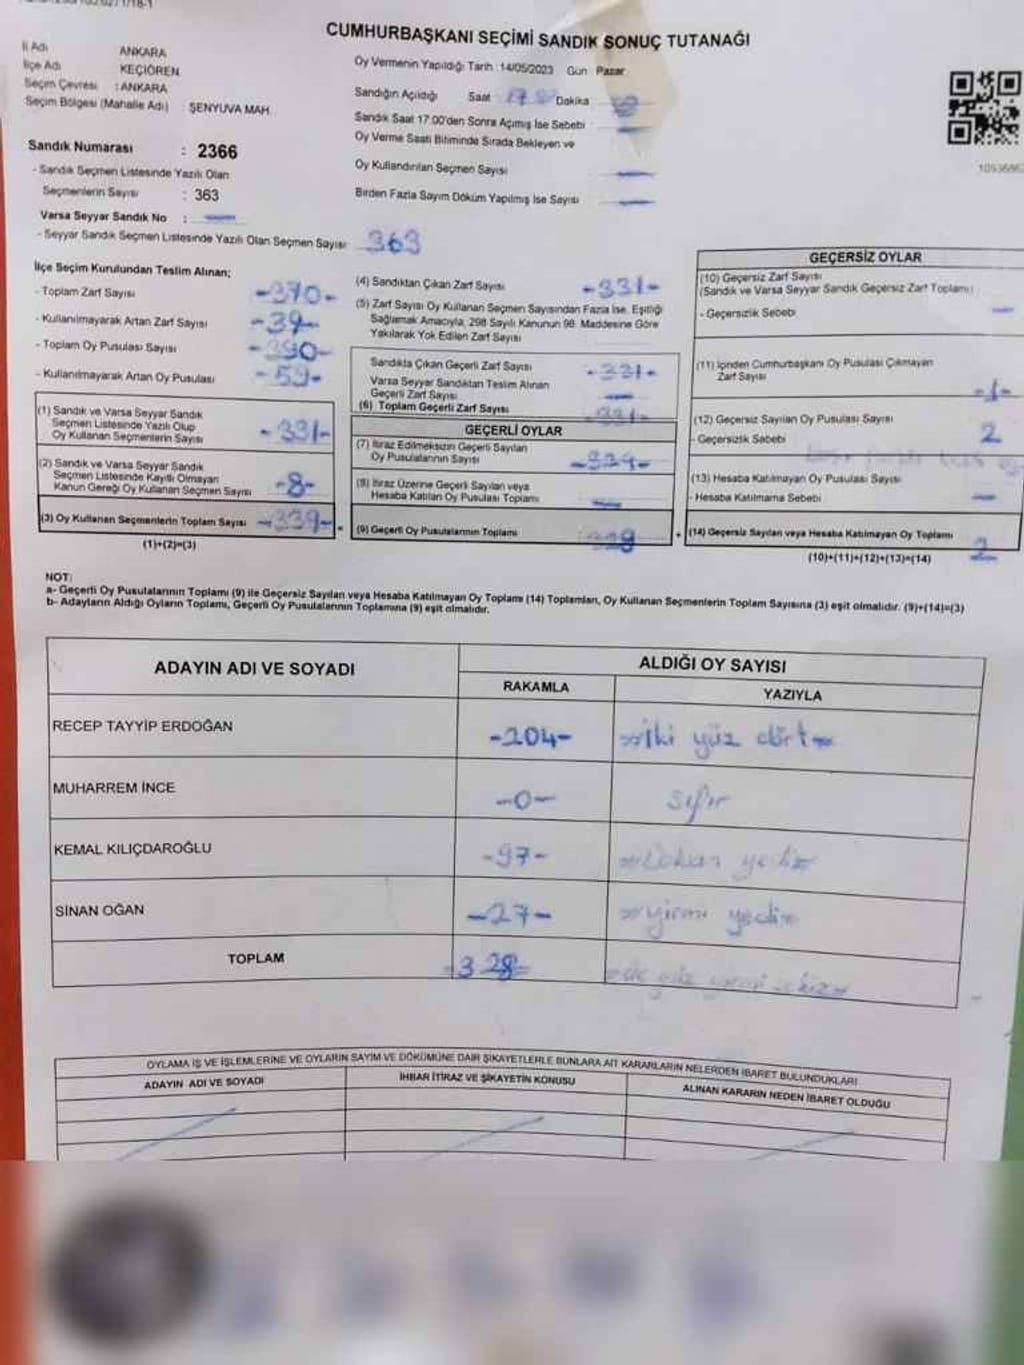 CUMHURBAŞKANI SEÇİMİ SANDIK SONUÇ TUTANAĞI
İl Adı ANKARA
İlçe Adı KEÇİÖREN
Seçim Çevresi : ANKARA
Seçim Bölgesi (Mahalle Adı) : ŞENYUVA MAH.
Oy Vermenin Yapıldığı Tarih : 14/05/2023 Gün Pazar
Sandığın Açıldığı Saat Dakika
Sandık Saat 17.00'den Sonra Açılmış İse Sebebi
Oy Verme Saati Bitiminde Sırada Bekleyen ve
Oy Kullandırılan Seçmen Sayısı
Birden Fazla Sayım Döküm Yapılmış İse Sayısı
Sandık Numarası : 2366
- Sandık Seçmen Listesinde Yazılı Olan
Seçmenlerin Sayısı : 363
Varsa Seyyar Sandık No :
- Seyyar Sandık Seçmen Listesinde Yazılı Olan Seçmen Sayısı 363
İlçe Seçim Kurulundan Teslim Alınan;
- Toplam Zarf Sayısı -370-
- Kullanılmayarak Artan Zarf Sayısı -39-
- Toplam Oy Pusulası Sayısı -390-
- Kullanılmayarak Artan Oy Pusulası -59-
(1) Sandık ve Varsa Seyyar Sandık
Seçmen Listesinde Yazılı Olup
Oy Kullanan Seçmenlerin Sayısı -331-
(2) Sandık ve Varsa Seyyar Sandık
Seçmen Listesinde Kayıtlı Olmayan
Kanun Gereği Oy Kullanan Seçmen Sayısı -8-
(3) Oy Kullanan Seçmenlerin Toplam Sayısı -339- =
(1)+(2)=(3)
(4) Sandıktan Çıkan Zarf Sayısı -331-
(5) Zarf Sayısı Oy Kullanan Seçmen Sayısından Fazla İse, Eşitliği
Sağlamak Amacıyla, 298 Sayılı Kanunun 98. Maddesine Göre
Yakılarak Yok Edilen Zarf Sayısı
Sandıkta Çıkan Geçerli Zarf Sayısı -331-
Varsa Seyyar Sandıktan Teslim Alınan
Geçerli Zarf Sayısı
(6) Toplam Geçerli Zarf Sayısı -331-
GEÇERLİ OYLAR
(7) İtiraz Edilmeksizin Geçerli Sayılan
Oy Pusulalarının Sayısı
(8) İtiraz Üzerine Geçerli Sayılan veya
Hesaba Katılan Oy Pusulası Toplamı
(9) Geçerli Oy Pusulalarının Toplamı +
GEÇERSİZ OYLAR
(10) Geçersiz Zarf Sayısı
(Sandık ve Varsa Seyyar Sandık Geçersiz Zarf Toplamı)
- Geçersizlik Sebebi
(11) İçinden Cumhurbaşkanı Oy Pusulası Çıkmayan
Zarf Sayısı -1-
(12) Geçersiz Sayılan Oy Pusulası Sayısı 2
- Geçersizlik Sebebi
(13) Hesaba Katılmayan Oy Pusulası Sayısı
- Hesaba Katılmama Sebebi
(14) Geçersiz Sayılan veya Hesaba Katılmayan Oy Toplamı 2
(10)+(11)+(12)+(13)=(14)
NOT:
a- Geçerli Oy Pusulalarının Toplamı (9) ile Geçersiz Sayılan veya Hesaba Katılmayan Oy Toplamı (14) Toplamları, Oy Kullanan Seçmenlerin Toplam Sayısına (3) eşit olmalıdır. (9)+(14)=(3)
b- Adayların Aldığı Oyların Toplamı, Geçerli Oy Pusulalarının Toplamına (9) eşit olmalıdır.
ADAYIN ADI VE SOYADI ALDIĞI OY SAYISI
RAKAMLA YAZIYLA
RECEP TAYYİP ERDOĞAN -204- iki yüz dört
MUHARREM İNCE -0- sıfır
KEMAL KILIÇDAROĞLU -97- Doksan yedi
SİNAN OĞAN -27- yirmi yedi
TOPLAM -328- üç yüz yirmi sekiz
OYLAMA İŞ VE İŞLEMLERİNE VE OYLARIN SAYIM VE DÖKÜMÜNE DAİR ŞİKAYETLERLE BUNLARA AİT KARARLARIN NELERDEN İBARET BULUNDUKLARI
ADAYIN ADI VE SOYADI İHBAR İTİRAZ VE ŞİKAYETİN KONUSU ALINAN KARARIN NEDEN İBARET OLDUĞU